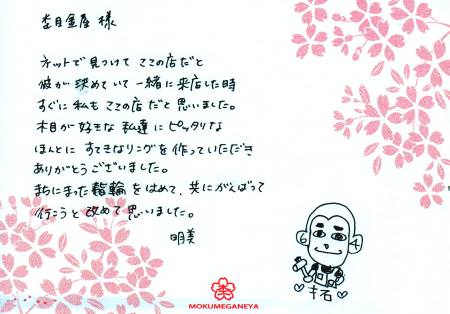 杢目金屋 様
ネットで見つけて ここの店だと
彼が決めていて 一緒に来店した時
すぐに私も ここの店だと思いました。
木目が好きな 私達に ピッタリな
ほんとに すてきなリングを作っていただき
ありがとうございました。
まちにまった 指輪をはめて、共にがんばって
行こうと改めて思いました。
明美
6 4
♡ 拓 ♡
MOKUMEGANEYA